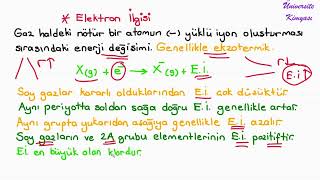 Üniversite
Kimyası
* Elektron İlgisi
Gaz haldeki nötür bir atomun (-) yüklü iyon oluşturması
sırasındaki enerji değişimi. Genellikle ekzotermik.
X(g) + e⁻ → X⁻(g) + E.i.
E.i ↑
Soy gazlar kararlı olduklarından E.i. çok düşüktür.
Aynı periyotta soldan sağa doğru E.i. genellikle artar.
Aynı grupta yukarıdan aşağıya genellikle E.i. azalır.
Soy gazların ve 2A grubu elementlerinin E.i. pozitiftir.
E.i. en büyük olan klordur.